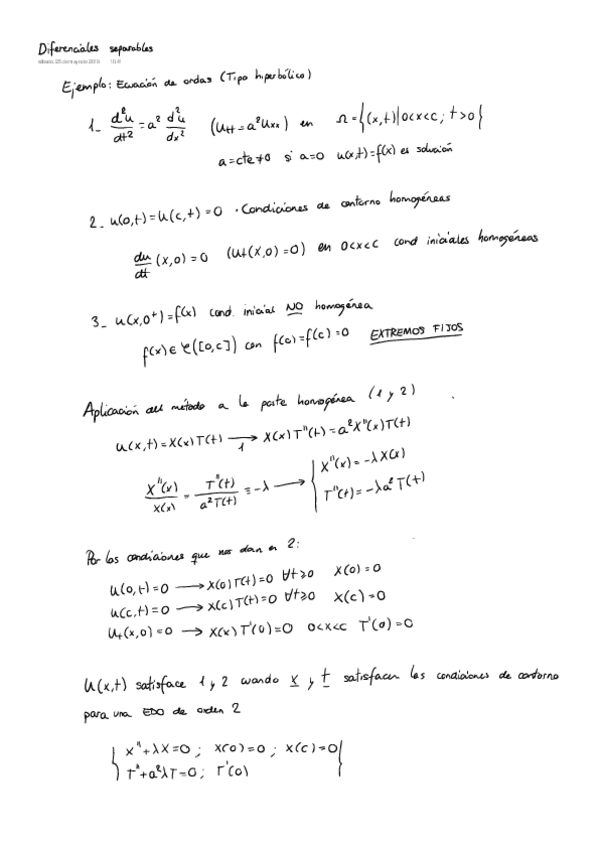 Diferenciales separables
Ejemplo: Ecuación de ondas (Tipo hiperbólico)
1_ d²u/dt² = a² d²u/dx² (Utt = a²Uxx) en Ω = {(x,t)|0<x<c; t>0}
a = cte ≠ 0 si a=0 u(x,t) = f(x) es solución
2_ u(0,t) = u(c,t) = 0 · Condiciones de contorno homogéneas
du/dt (x,0) = 0 (Ut(x,0) = 0) en 0<x<c cond iniciales homogéneas
3_ u(x,0⁺) = f(x) cond. inicial NO homogénea
f(x) ∈ C([0,c]) con f(0) = f(c) = 0 EXTREMOS FIJOS
Aplicación del método a la parte homogénea (1 y 2)
u(x,t) = X(x)T(t) →1 X(x)T''(t) = a²X''(x)T(t)
X''(x)/X(x) = T''(t)/a²T(t) = -λ → { X''(x) = -λX(x)
T''(t) = -λa²T(t)
Por las condiciones que nos dan en 2:
u(0,t) = 0 → X(0)T(t) = 0 ∀t≥0 X(0) = 0
u(c,t) = 0 → X(c)T(t) = 0 ∀t≥0 X(c) = 0
Ut(x,0) = 0 → X(x)T'(0) = 0 0<x<c T'(0) = 0
U(x,t) satisface 1 y 2 cuando X y T satisfacen las condiciones de contorno
para una EDO de orden 2
{ X'' + λX = 0 ; X(0) = 0 ; X(c) = 0 }
T'' + a²λT = 0 ; T'(0)